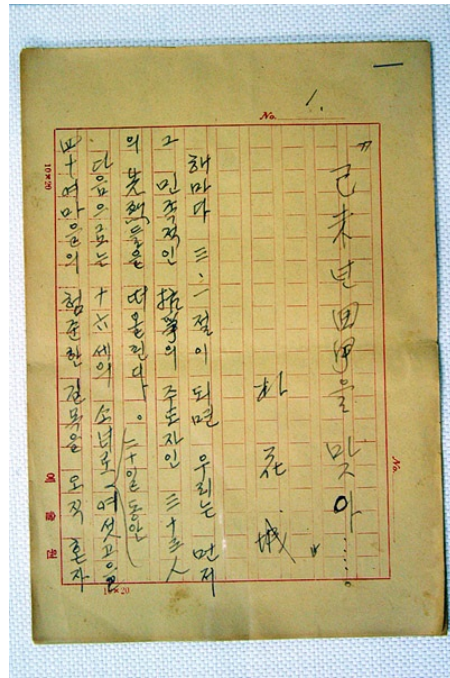 No. 1.
No.
"己未년 回甲을 맞아……。
朴花城 "
해마다 三·一절이 되면 우리는 먼저
그 민족적인 抗爭의 주도자인 三十三人
의 先烈들을 떠올린다。 二十일동안
다음으로는 十六세의 소녀로 여섯고을
四十여마을의 험준한 길목을 오직 혼자
10×20
예술원
10×20